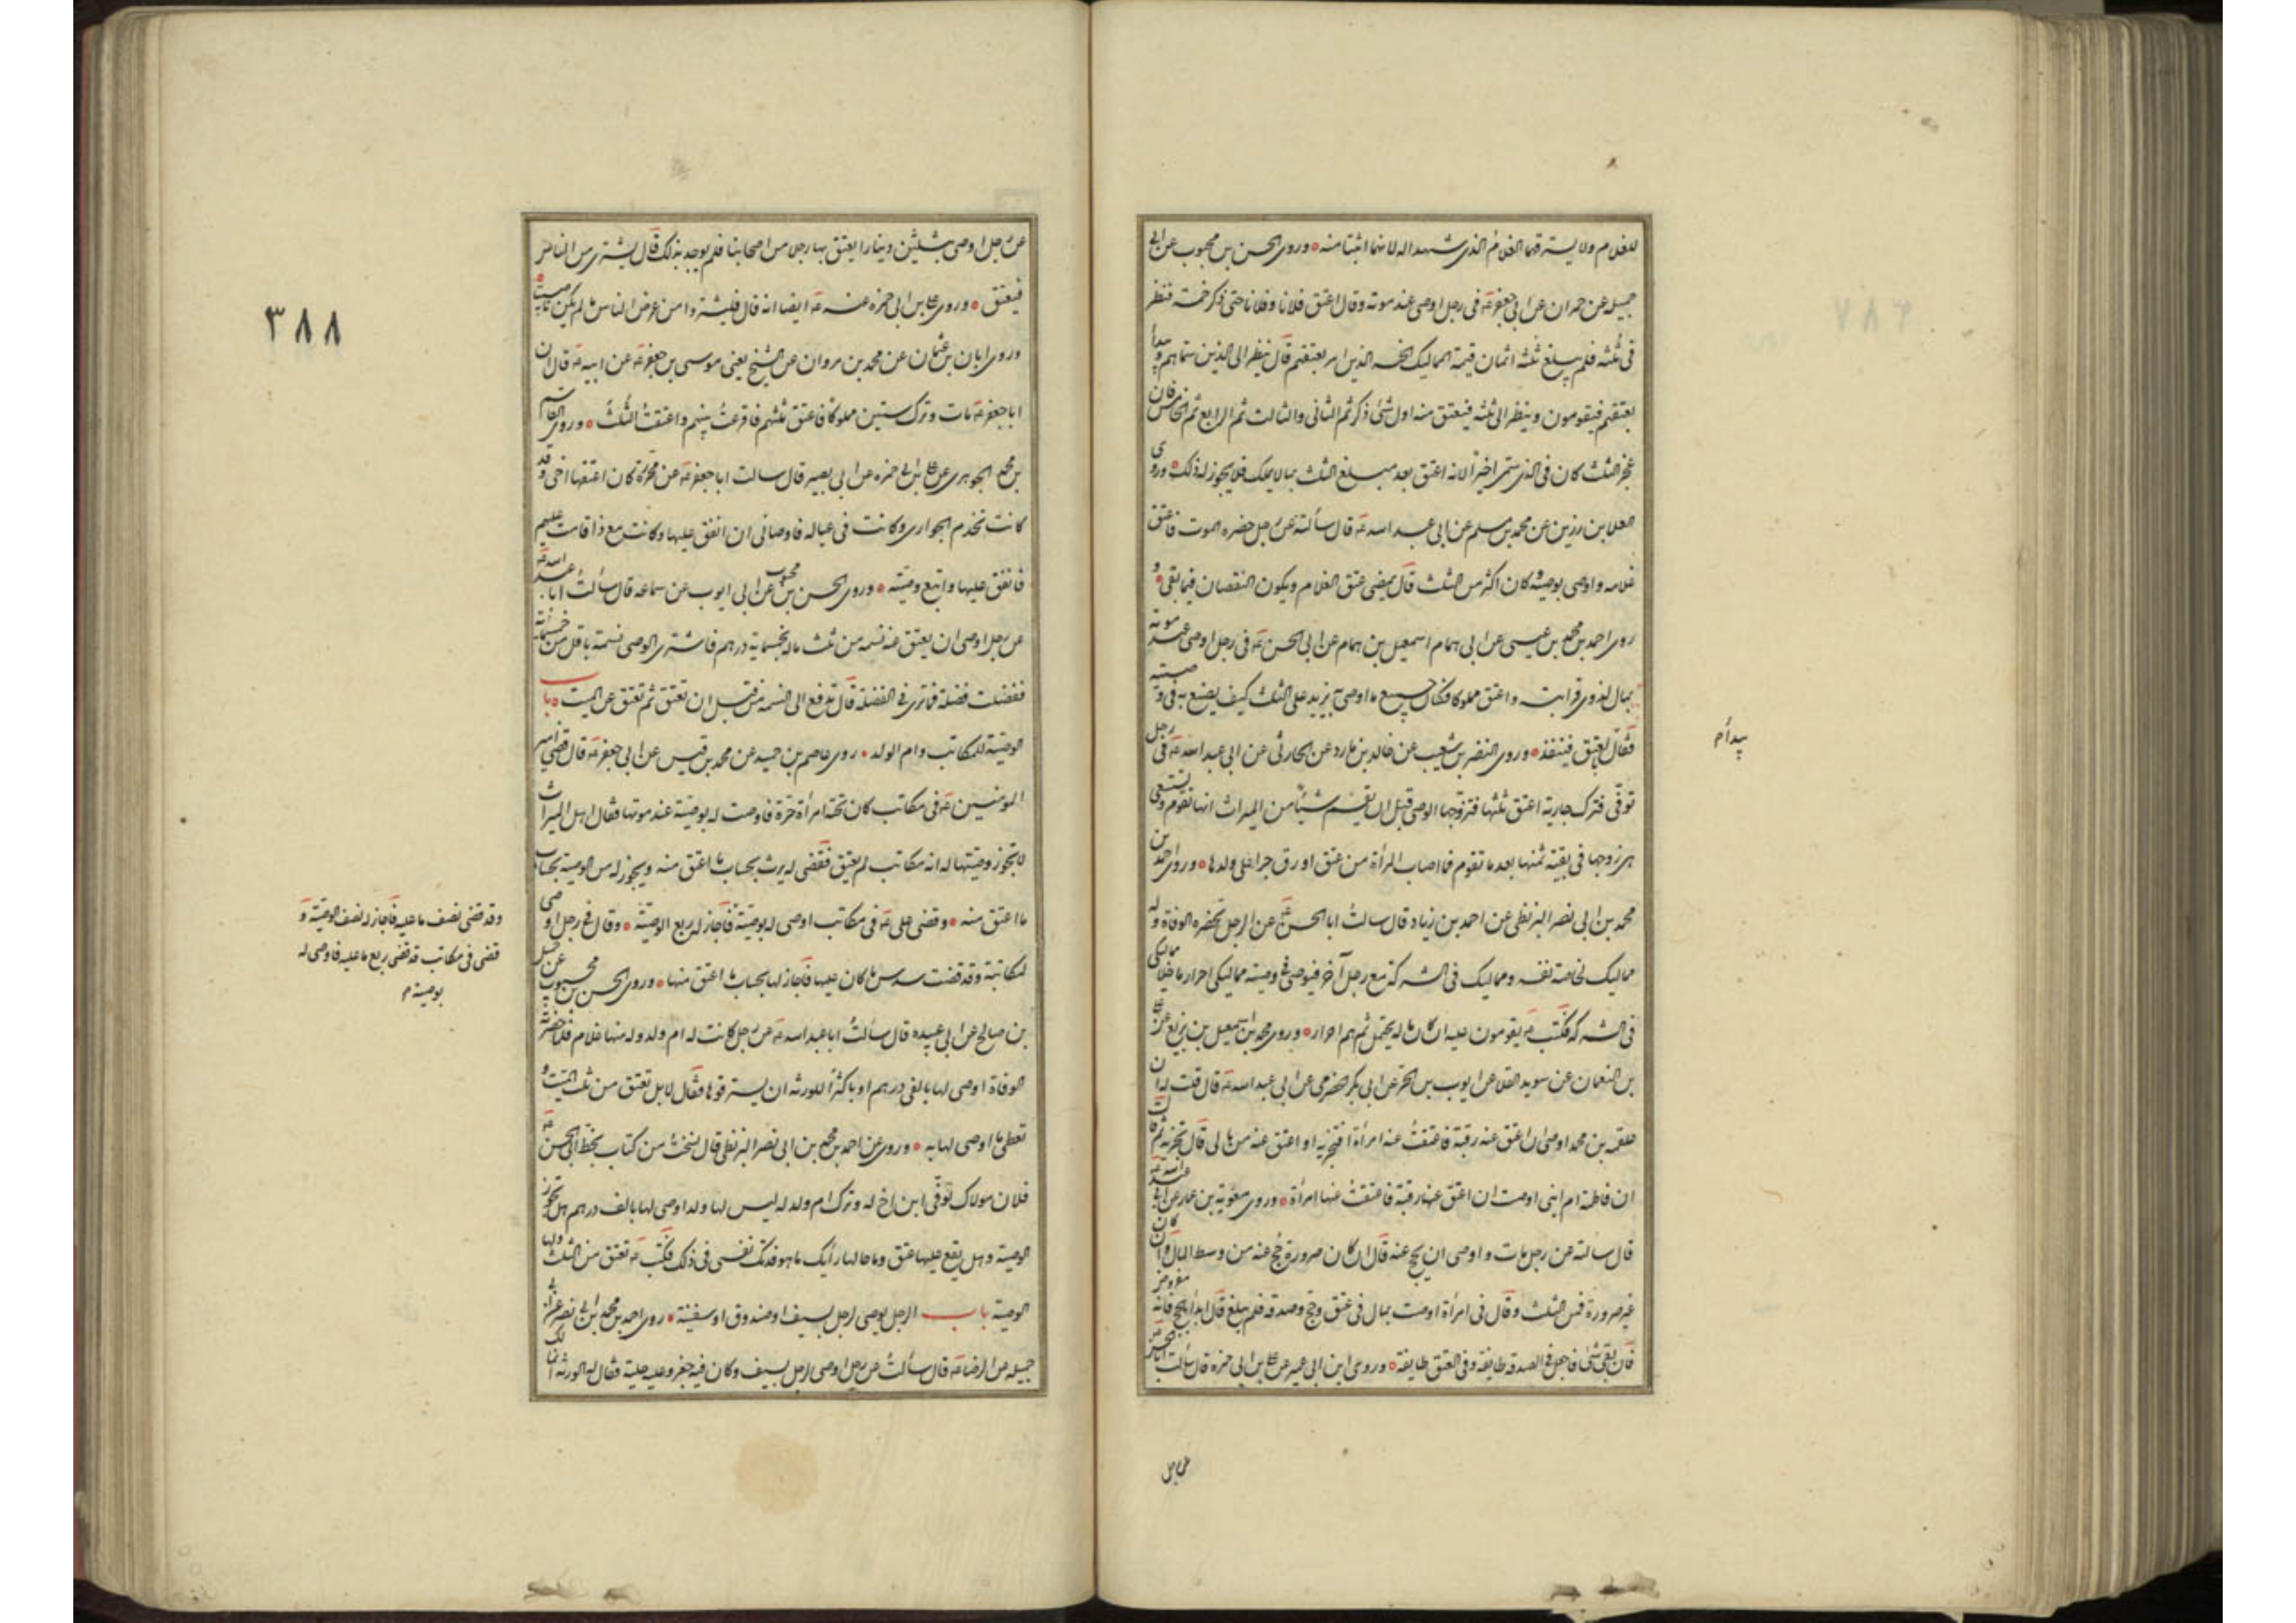 للغلام ولا يسترقهما الغلام الذى شهدا له لانهما اثبتا نسبه وروى الحسن بن محبوب عن ابى
جميله عن حمران عن ابى جعفر ع فى رجل اوصى عند موته وقال اعتق فلانا وفلانا حتى ذكر خمسة فنظر
فى ثلثه فلم يبلغ ثلثه اثمان قيمة المماليك الخمسة الذين امر بعتقهم قال ينظر الى الذين سماهم ويبدأ
بعتقهم فيقومون وينظر الى ثلثه فيعتق منه اول شئ ذكر ثم الثانى والثالث ثم الرابع ثم الخامس فان
عجز الثلث كان فى الذى سمى اخيرا لانه اعتق بعد مبلغ الثلث بما لا يملك فلا يجوز له ذلك وروى
العلا بن رزين عن محمد بن مسلم عن ابى عبد الله ع قال سألته عن رجل حضره الموت فاعتق
غلامه واوصى بوصية وكان اكثر من الثلث قال يمضى عتق الغلام ويكون النقصان فيما بقى و
روى احمد بن محمد بن عيسى عن ابى همام اسمعيل بن همام عن ابى الحسن ع فى رجل اوصى عند موته
بمال لذوى قرابته واعتق مملوكا فكان جميع ما اوصى به يزيد على الثلث كيف يصنع به فى وصيته
فقال بالعتق فينفذه وروى النضر بن شعيب عن خالد بن مارد عن الحارثى عن ابى عبد الله ع فى رجل
توفى فترك جارية اعتق ثلثها فتزوجها الوصى قبل ان يقسم شيئا من الميراث انها تقوم وتستسعى
هى وزوجها فى بقية ثمنها بعد ما تقوم فما اصاب المرأة من عتق اورق جرا على ولدها وروى احمد بن
محمد بن ابى نصر البزنطى عن احمد بن زياد قال سالت ابا الحسن ع عن الرجل تحضره الوفاة وله
مماليك لخاصة نفسه ومماليك فى الشركة مع رجل آخر فيوصى فى وصيته مماليكى احرار ما خلا مماليكى
فى الشركة فكتب ع يقومون عليه ان كان ماله يحتمل ثم هم احرار وروى محمد بن اسمعيل بن بزيع عن على
بن النعمان عن سويد القلا عن ايوب بن الحر عن ابى بكر الحضرمى عن ابى عبد الله ع قال قلت له ان
علقمه بن محمد اوصانى ان اعتق عنه رقبة فاعتقت عنه امرأة افتجزيه او اعتق عنه من مالى قال تجزيه ثم قال
ان فاطمة ام ابنى اوصت ان اعتق عنها رقبة فاعتقت عنها امرأة وروى معوية بن عمار عن ابى عبد الله ع
قال سالته عن رجل مات واوصى ان يحج عنه قال ان كان صرورة حج عنه من وسط المال وان كان
غير صرورة فمن الثلث وقال فى امرأة اوصت بمال فى عتق وحج وصدقة فلم يبلغ قال ابدأ بالحج فانه مفروض
فان بقى شئ فاجعل فى الصدقة طايفة وفى العتق طايفة وروى ابن ابى عمير عن على بن ابى حمزه قال سالت
يبدأ م
عن رجل
عن رجل اوصى بثلثين دينارا يعتق بها رجل من اصحابنا فلم يوجد بذلك قال يشترى من الناس
فيعتق وروى على بن ابى حمزه عنه ع ايضا انه قال فليشتروا من عرض الناس ما لم يكن ناصبيا
وروى ابان بن عثمان عن محمد بن مروان عن الشيخ يعنى موسى بن جعفر ع عن ابيه ع قال ان
ابا جعفر ع مات وترك ستين مملوكا فاعتق ثلثهم فاقرعت بينهم واعتقت الثلث وروى القاسم
بن محمد الجوهرى عن على بن ابى حمزه عن ابى بصير قال سالت ابا جعفر ع عن محررة كان اعتقها اخى وقد
كانت تخدم الجوارى وكانت فى عياله فاوصانى ان انفق عليها وكانت مع ذا قامت عليهم
فانفق عليها واتبع وصيته وروى الحسن بن محبوب عن ابى ايوب عن سماعه قال سألت ابا عبد الله ع
عن رجل اوصى ان يعتق عنه نسمه من ثلث ماله بخمسماية درهم فاشترى الوصى نسمة باقل من خمسمائة
ففضلت فضلة فما ترى فى الفضلة قال تدفع الى النسمة من قبل ان تعتق ثم تعتق عن الميت باب
الوصية للمكاتب وام الولد روى عاصم بن حميد عن محمد بن قيس عن ابى جعفر ع قال قضى امير
المومنين ع فى مكاتب كان تحته امرأة حرة فاوصت له بوصية عند موتها فقال اهل الميراث
لا تجوز وصيتها له انه مكاتب لم يعتق فقضى له يرث بحساب ما اعتق منه ويجوز له من الوصية بحساب
ما اعتق منه وقضى على ع فى مكاتب اوصى له بوصية فاجاز له ربع الوصية وقال فى رجل اوصى
لمكاتبة وقد قضت سدس ما كان عليها فاجاز لها بحساب ما اعتق منها وروى الحسن بن محبوب عن جميل
بن صالح عن ابى عبيده قال سألت ابا عبد الله ع عن رجل كانت له ام ولد وله منها غلام فلما حضرته
الوفاة اوصى لها بالفى درهم او باكثر اللورثه ان يسترقوها فقال لا بل تعتق من ثلث الميت و
تعطى ما اوصى لها به وروى عن احمد بن محمد بن ابى نصر البزنطى قال نسخت من كتاب بخط ابى الحسن ع
فلان مولاك توفى ابن اخ له وترك ام ولد له ليس لها ولد اوصى لها بالف درهم هل تجوز
الوصية وهل يقع عليها عتق وما حالها رأيك ما هو فدتك نفسى فى ذلك فكتب ع تعتق من الثلث ولها
الوصية باب الرجل يوصى لرجل بسيف او صندوق او سفينة روى احمد بن محمد بن ابى نصر عن ابى
جميله عن الرضا ع قال سألت عن رجل اوصى لرجل بسيف وكان فيه جفر وعليه حلية فقال له الورثه انما لك
وقد قضى نصف ما عليه فاجاز له نصف الوصية و
قضى فى مكاتب قد قضى ربع ما عليه فاوصى له
بوصية م
٣٨٨